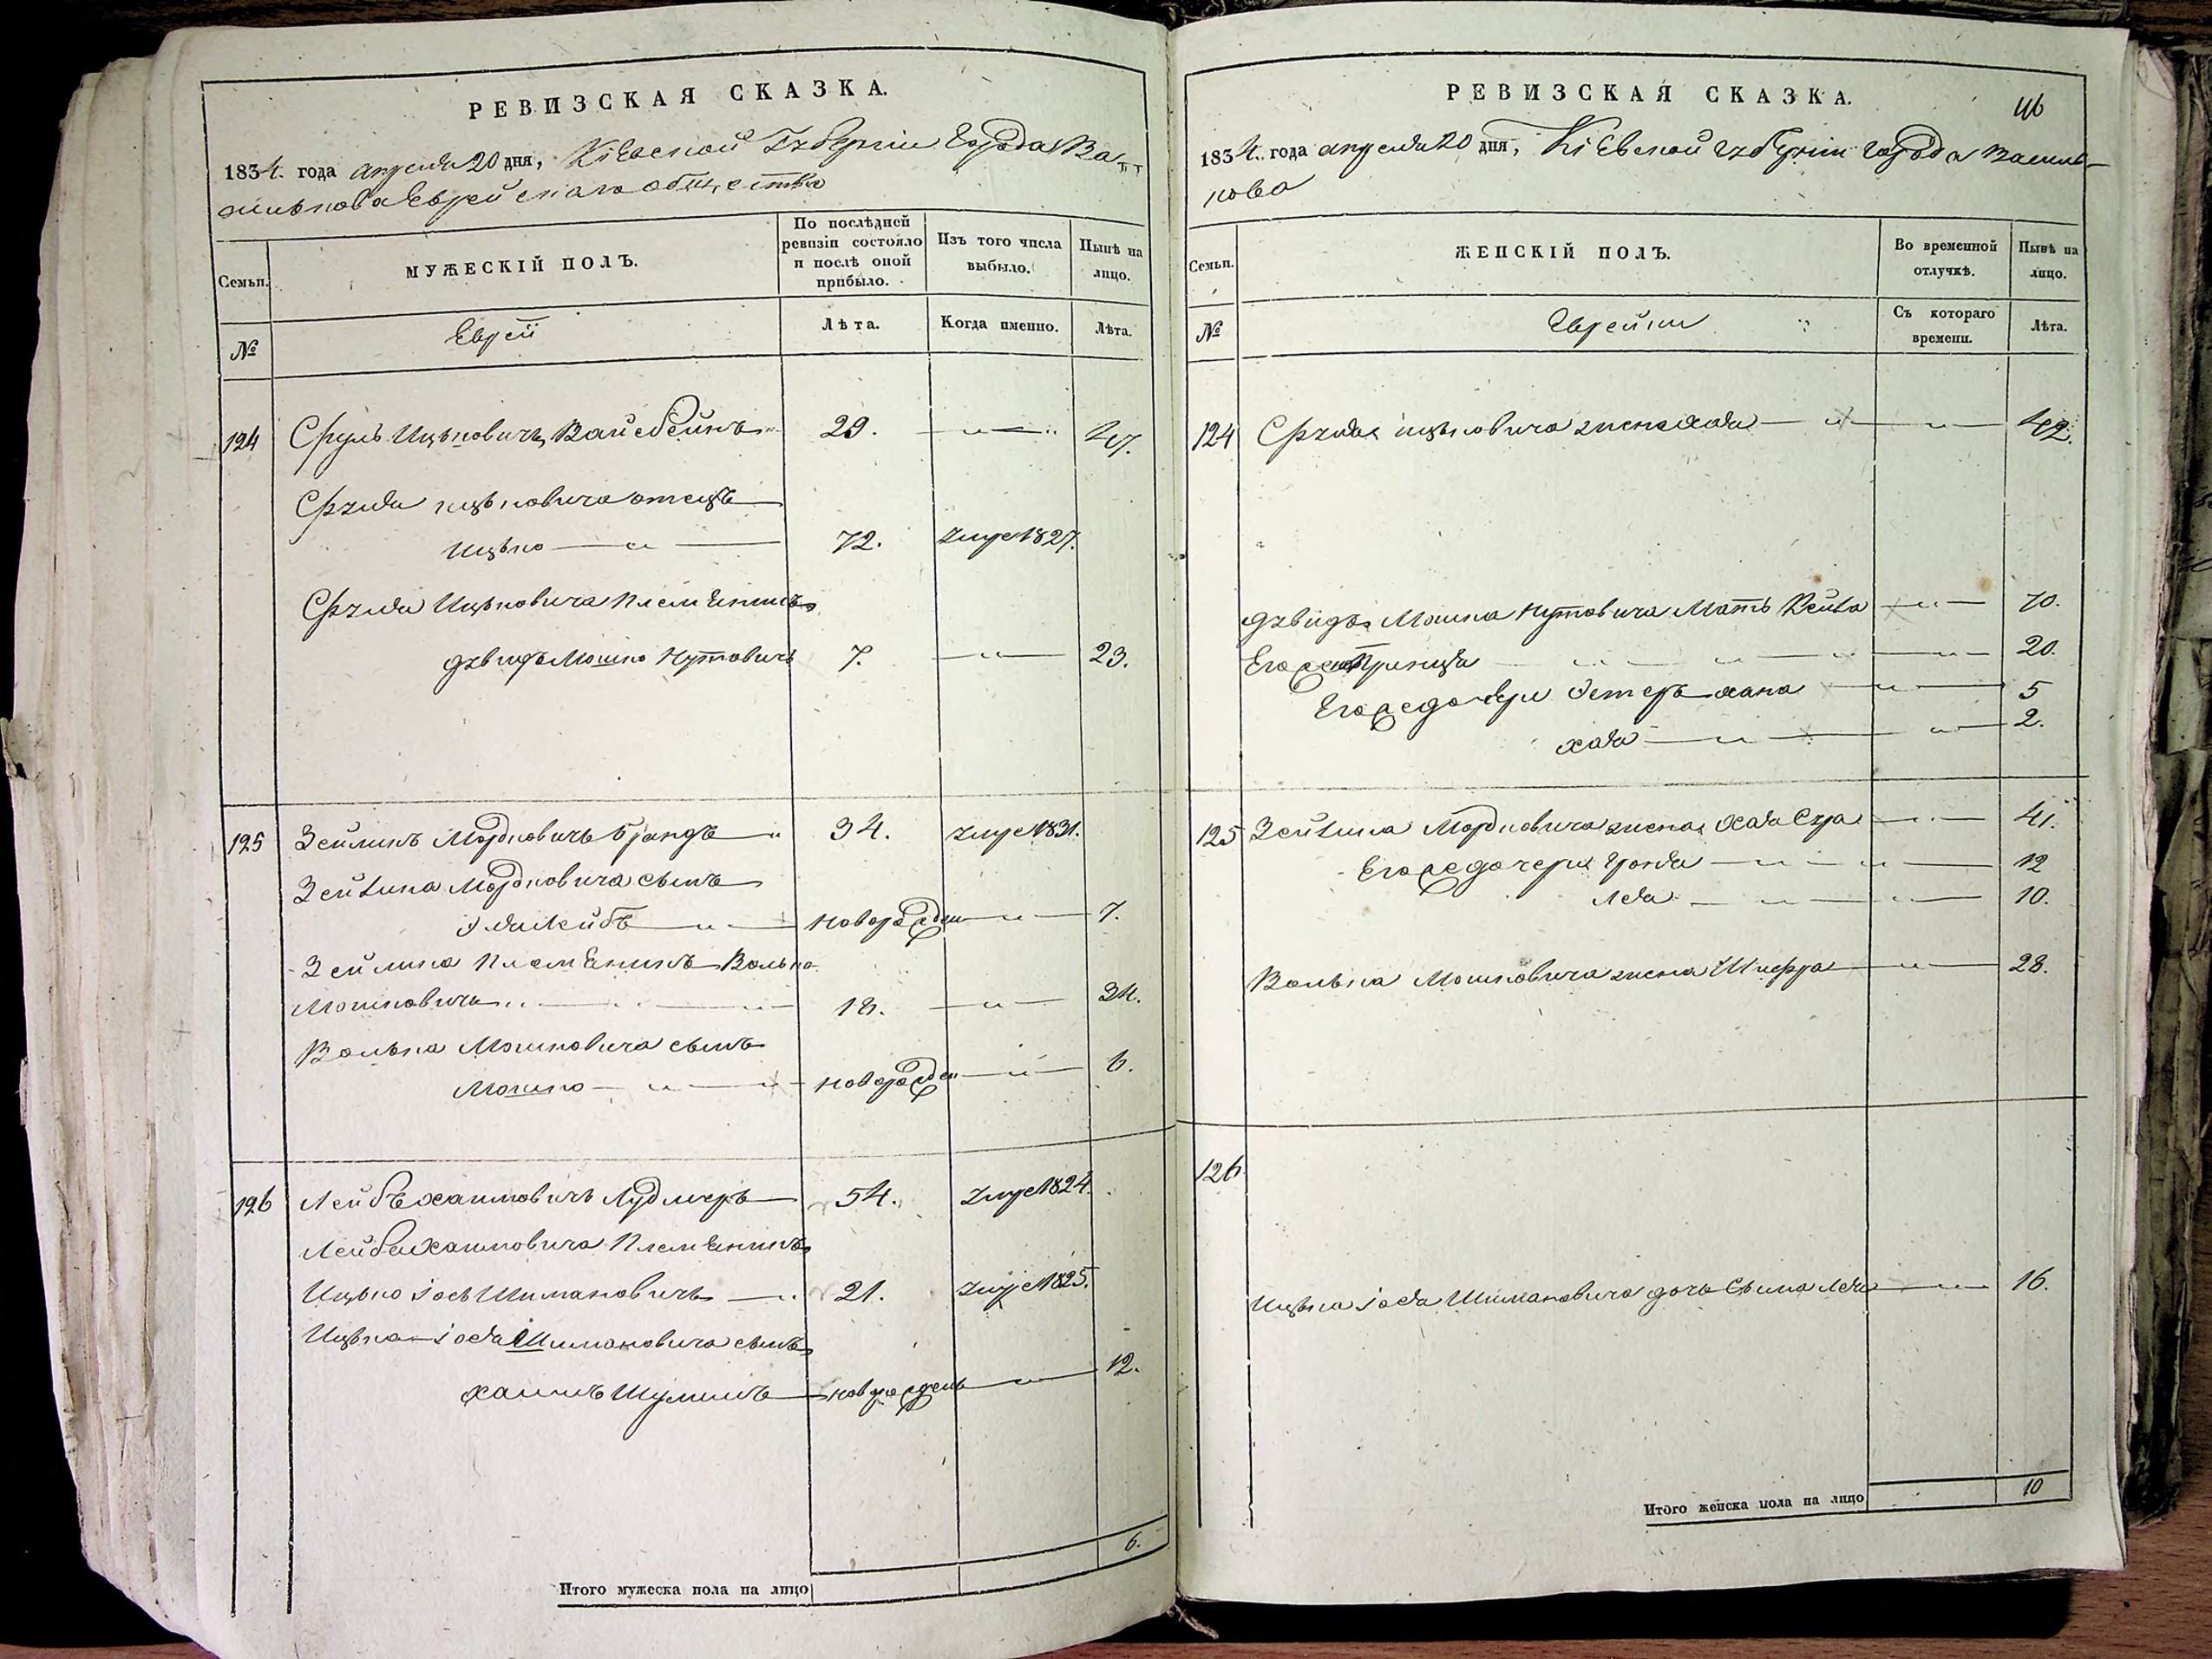 РЕВИЗСКАЯ СКАЗКА.
1834. года апреля 20 дня, Кіевской Губерніи Города Ва-
силькова Еврейскаго общества
Семьи.
МУЖЕСКІЙ ПОЛЪ.
По послѣдней ревизіи состояло и послѣ оной прибыло.
Изъ того числа выбыло.
Нынѣ на лицо.
№
Еврей
Лѣта.
Когда именно.
Лѣта.
124 Сруль Ицьковичъ Вайсбейнъ 29. 47.
Сруля Ицьковича отецъ
Ицько 72. умре 1827.
Сруля Ицьковича племенникъ
Дувидъ Мошко Нутовичъ 7. 23.
125 Зейликъ Мордковичъ Брандъ 34. умре 1831.
Зейлика Мордковича сынъ
новорожден 7.
Зейлика племенникъ Волько
Мошковичъ 18. 34.
Волька Мошковича сынъ
Мошко новорожден 6.
126 Лейбъ Хаимовичъ 54. умре 1824.
Лейбы Хаимовича племенникъ
Ицько Іось Шимановичъ 21. умре 1825.
Ицька Іося Шимановича сынъ
Хаимъ Шулимъ новорожденъ 12.
Итого мужеска пола на лицо 6.
РЕВИЗСКАЯ СКАЗКА.
46
1834. года апреля 20 дня, Кіевской Губерніи города Василь-
кова
Семьи.
ЖЕНСКІЙ ПОЛЪ.
Во временной отлучкѣ.
Нынѣ на лицо.
№
Еврейки
Съ котораго времени.
Лѣта.
124 Сруля Ицьковича жена Хая 42.
Дувидъ Мошка Нутовича мать Рейза 70.
Его жена 20.
Его же дочери Эстеръ Хана 5
Хая 2.
125 Зейлика Мордковича жена Хая Сура 41.
Его же дочери 12
Лея 10.
Волька Мошковича жена Шифра 28.
126
Ицька Іося Шимановича дочь Сима Лея 16.
Итого женска пола на лицо 10